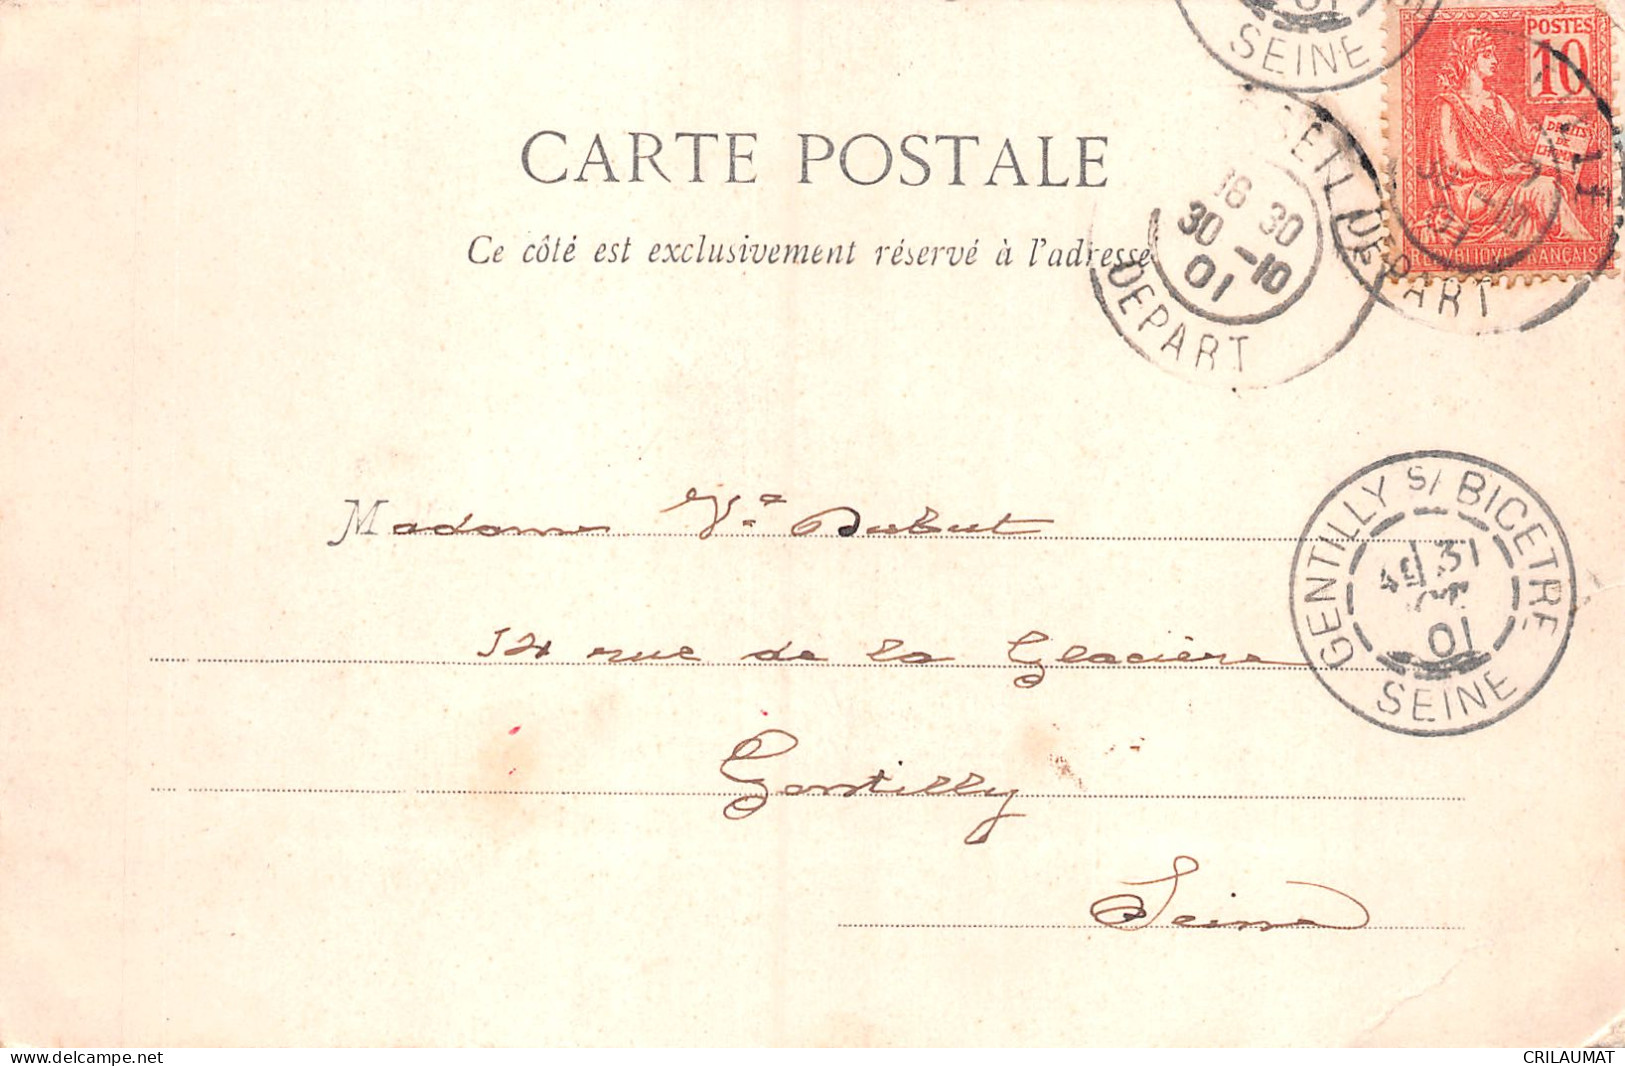 SEINE
POSTES
10
DROITS
DE
L'HOMME
REPUBLIQUE FRANÇAISE
CARTE POSTALE
18 30
30 -10
01
DEPART
DEPART
Ce côté est exclusivement réservé à l'adresse
GENTILLY S/ BICETRE
31
01
SEINE
Madame Vve Dubut
rue de la Glacière
Gentilly
Seine
www.delcampe.net
CRILAUMAT